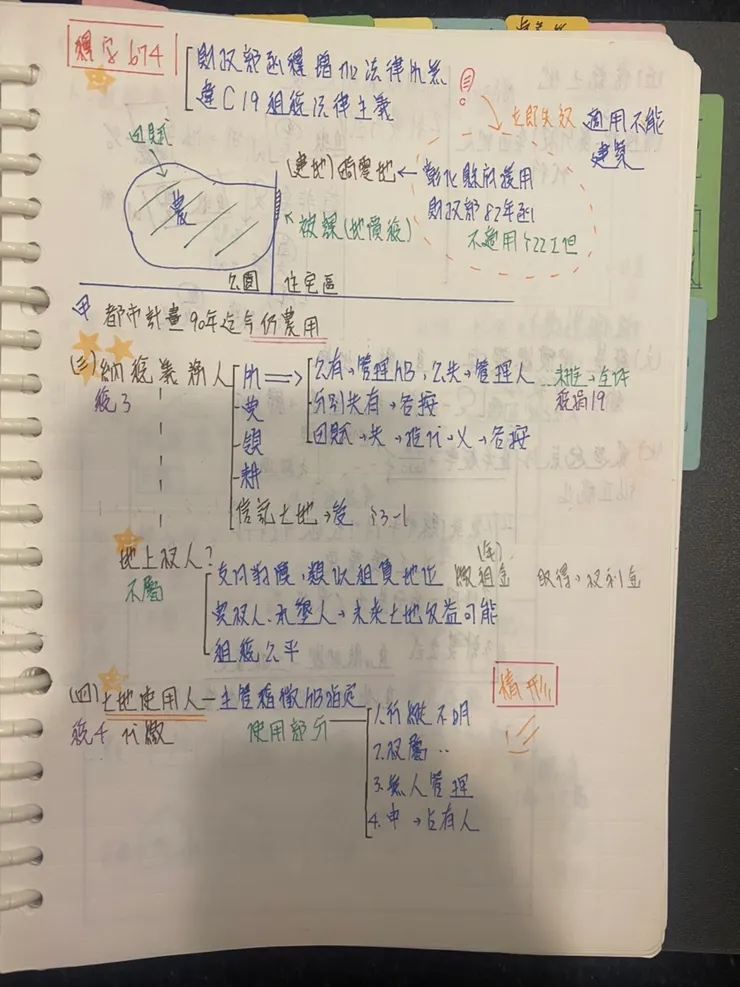 釋字674
財政部函釋增加法律所無
違C19租稅法律主義
立即失效 適用不能
建築
田賦
農
(建地)畸零地 ← 彰化縣府適用
財政部82年函
不適用§22I但
被課(地價稅)
公園 住宅區
甲 都市計畫90年迄今仍農用
(三)納稅義務人
稅3
所 ⇒ 公有→管理機關,公共→管理人
分別共有→各按
田賦→共→推代→X→各按
未推→全体
稅捐19
典
領
耕
信託土地→受 §3-1
地上權人?
不屬
支付對價,類似租賃地位 (年)繳租金 取得→權利金
典權人、承墾人→未來土地收益可能
租稅公平
(四)土地使用人—主管稽徵機關指定
稅4 代繳
使用部分
情形
1.行蹤不明
2.權屬..
3.無人管理
4.申→占有人